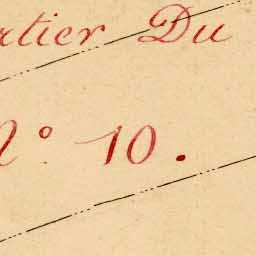 rtier Du
N° 10.